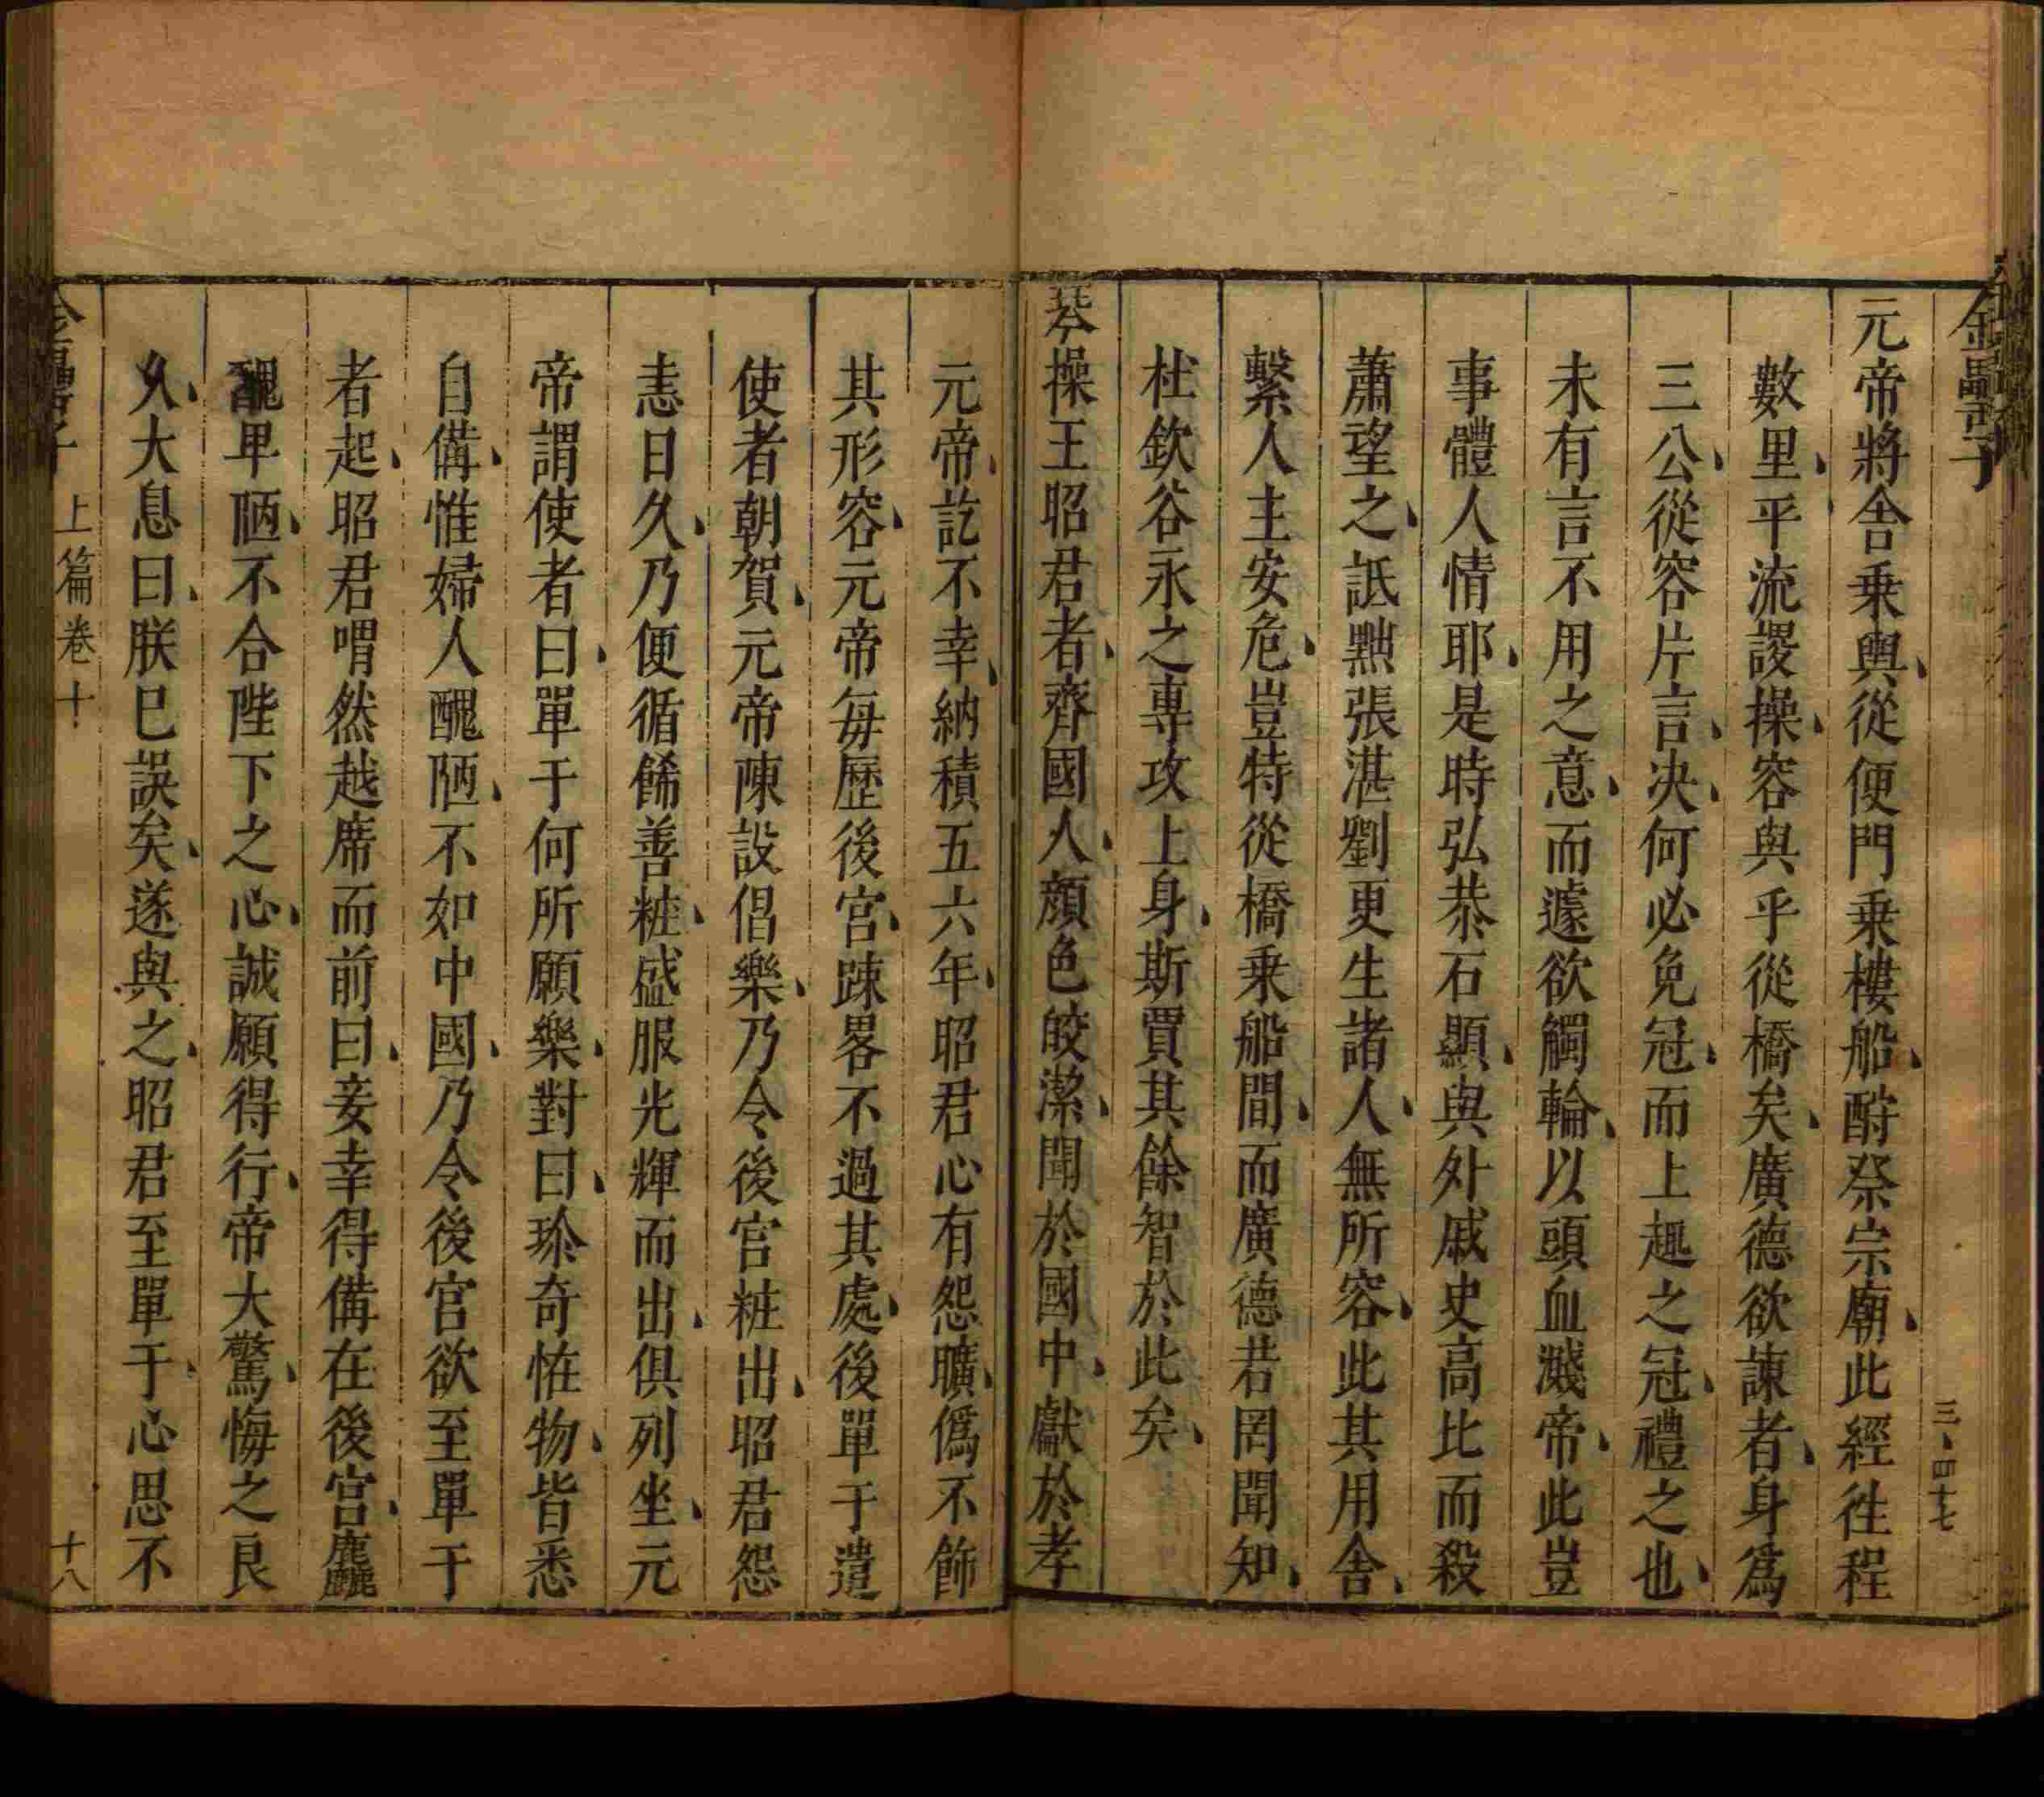 金罍子
三、四十七
元帝將舍乗輿、從便門乗樓船、酧祭宗廟、此經徃程
數里、平流謖操、容與乎從橋矣、廣德欲諫者、身爲
三公、從容片言、决、何必免冠、而上趣之冠、禮之也、
未有言不用之意、而遽欲觸輪、以頭血濺帝、此豈
事體人情耶、是時弘恭石顯、與外戚史高比而殺
蕭望之、詆黜張湛劉更生諸人、無所容、此其用舍、
繫人主安危、豈特從橋乗船間、而廣德若罔聞知、
杜欽谷永之專攻上身、斯賈其餘智於此矣、
琴操王昭君者、齊國人、顏色皎潔、聞於國中、獻於孝
元帝、訖不幸、納積五六年、昭君心有怨曠、僞不飾
其形容、元帝每歷後宮、踈畧不過其處、後單于遣
使者朝賀、元帝陳設倡樂、乃令後宮粧出、昭君怨
恚日久、乃便循餙善粧、盛服光輝而出、俱列坐、元
帝謂使者曰、單于何所願樂、對曰、珎奇恠物、皆悉
自備、惟婦人醜陋、不如中國、乃令後宮欲至單于
者起、昭君喟然越席而前曰、妾幸得備在後宮、麤
醜卑陋、不合陛下之心、誠願得行、帝大驚、悔之良
久、大息曰、朕已誤矣、遂與之、昭君至單于、心思不
金罍子
上篇卷十
十八